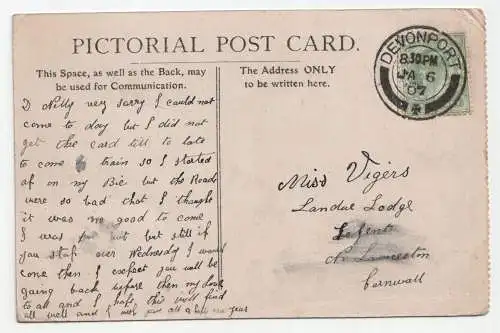 PICTORIAL POST CARD.
This Space, as well as the Back, may
be used for Communication.
The Address ONLY
to be written here.
DEVONPORT
8.30PM
JA 6
07
D Nelly very sorry I could not
come to day but I did not
get the card till to late
to come train so I started
of on my Bie but the Roads
were so bad that I thought
it was no good to come
I was put out but still if
you stop over Wednesday I would
come then I expect you will be
going back before then my love
to all and I hope this will find
all well and I wish you all a new year
Miss Vigers
Landue Lodge
Lezent
Nr Launceston
Cornwall